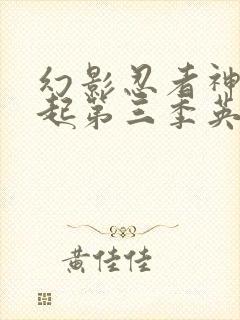 幻影忍者神
起第三季英
黄佳佳